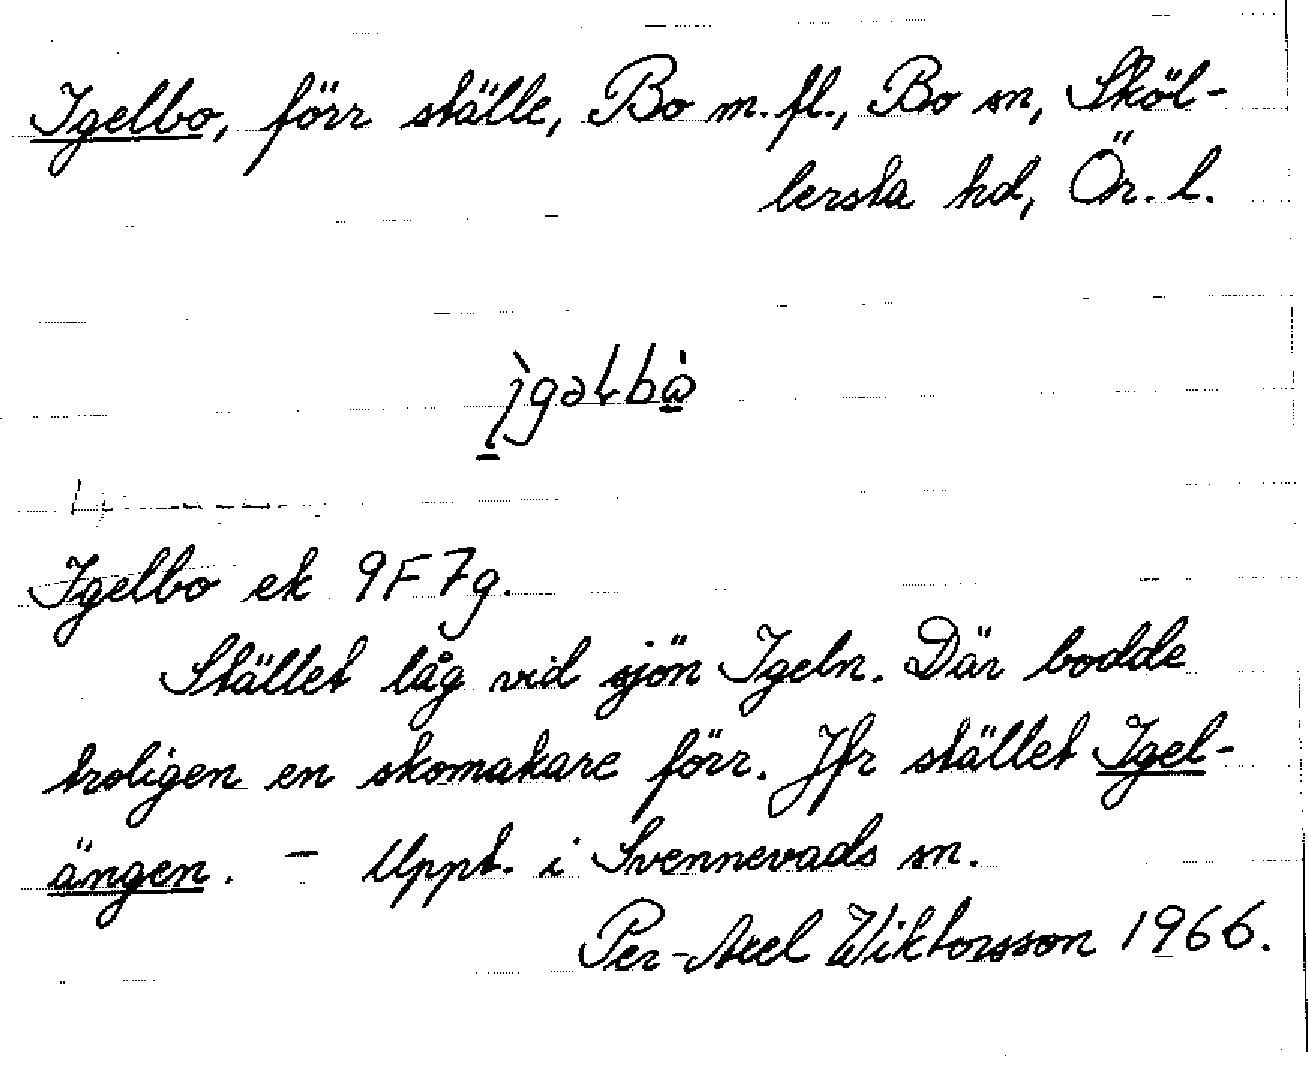 Igelbo, förr ställe, Bo m.fl., Bo sn, Sköl-
lersta hd, Ör. l.
Igelbo ek 9F7g.
Stället låg vid sjön Igeln. Där bodde
troligen en skomakare förr. Jfr stället Igel-
ängen. – Uppt. i Svennevads sn.
Per-Axel Wiktorsson 1966.